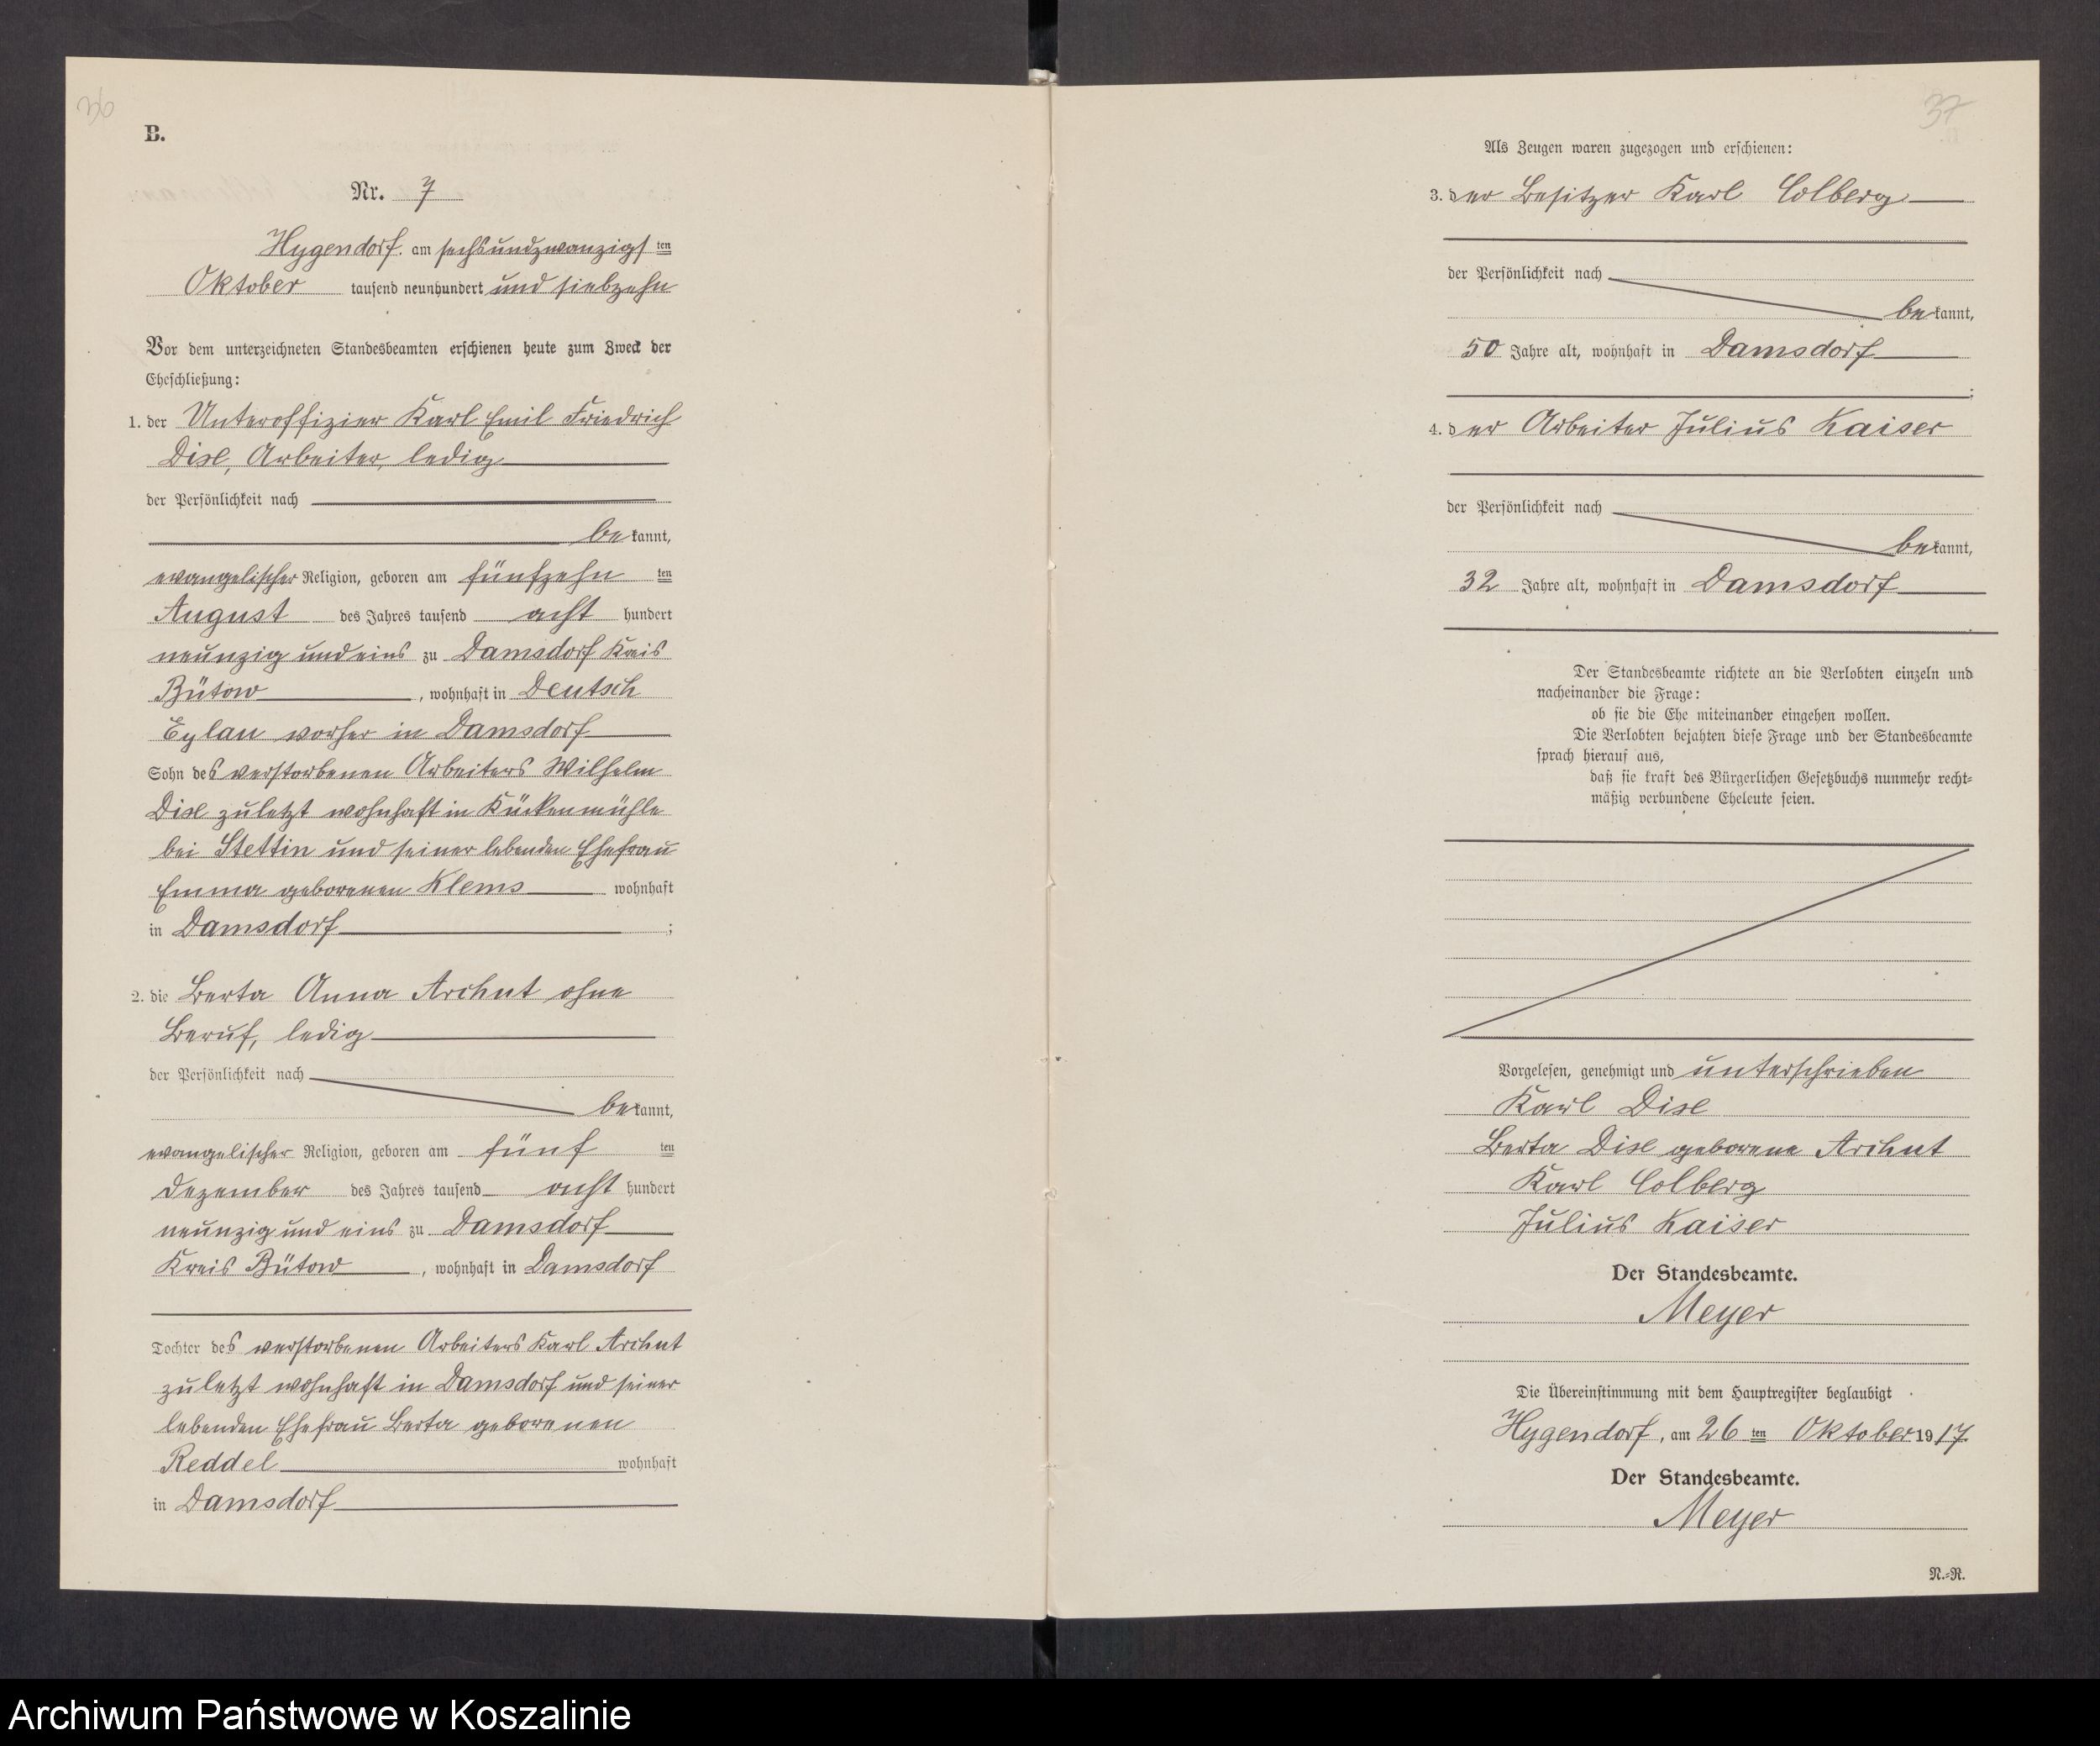 36
B.
Nr. 7
Hygendorf am sechsundzwanzigsten
Oktober tausend neunhundert und siebzehn
Vor dem unterzeichneten Standesbeamten erschienen heute zum Zweck der
Eheschließung:
1. der Unteroffizier Karl Emil Friedrich
Disl, Arbeiter, ledig
der Persönlichkeit nach
bekannt,
evangelischer Religion, geboren am fünfzehn ten
August des Jahres tausend acht hundert
neunzig und eins zu Damsdorf Kreis
Bütow, wohnhaft in Deutsch
Eylau vorher in Damsdorf
Sohn des verstorbenen Arbeiters Wilhelm
Disl zuletzt wohnhaft in Kückenmühle
bei Stettin und seiner lebenden Ehefrau
Emma geborenen Klems wohnhaft
in Damsdorf;
2. die Berta Anna Archut ohne
Beruf, ledig
der Persönlichkeit nach
bekannt,
evangelischer Religion, geboren am fünf ten
Dezember des Jahres tausend acht hundert
neunzig und eins zu Damsdorf
Kreis Bütow, wohnhaft in Damsdorf
Tochter des verstorbenen Arbeiters Karl Archut
zuletzt wohnhaft in Damsdorf und seiner
lebenden Ehefrau Berta geborenen
Reddel wohnhaft
in Damsdorf
37
Als Zeugen waren zugezogen und erschienen:
3. der Besitzer Karl Colberg
der Persönlichkeit nach
bekannt,
50 Jahre alt, wohnhaft in Damsdorf
;
4. der Arbeiter Julius Kaiser
der Persönlichkeit nach
bekannt,
32 Jahre alt, wohnhaft in Damsdorf
.
Der Standesbeamte richtete an die Verlobten einzeln und
nacheinander die Frage:
ob sie die Ehe miteinander eingehen wollen.
Die Verlobten bejahten diese Frage und der Standesbeamte
sprach hierauf aus,
daß sie kraft des Bürgerlichen Gesetzbuchs nunmehr recht-
mäßig verbundene Eheleute seien.
Vorgelesen, genehmigt und unterschrieben
Karl Disl
Berta Disl geborene Archut
Karl Colberg
Julius Kaiser
Der Standesbeamte.
Meyer
Die Übereinstimmung mit dem Hauptregister beglaubigt
Hygendorf, am 26 ten Oktober 1917
Der Standesbeamte.
Meyer
N.-R.
Archiwum Państwowe w Koszalinie